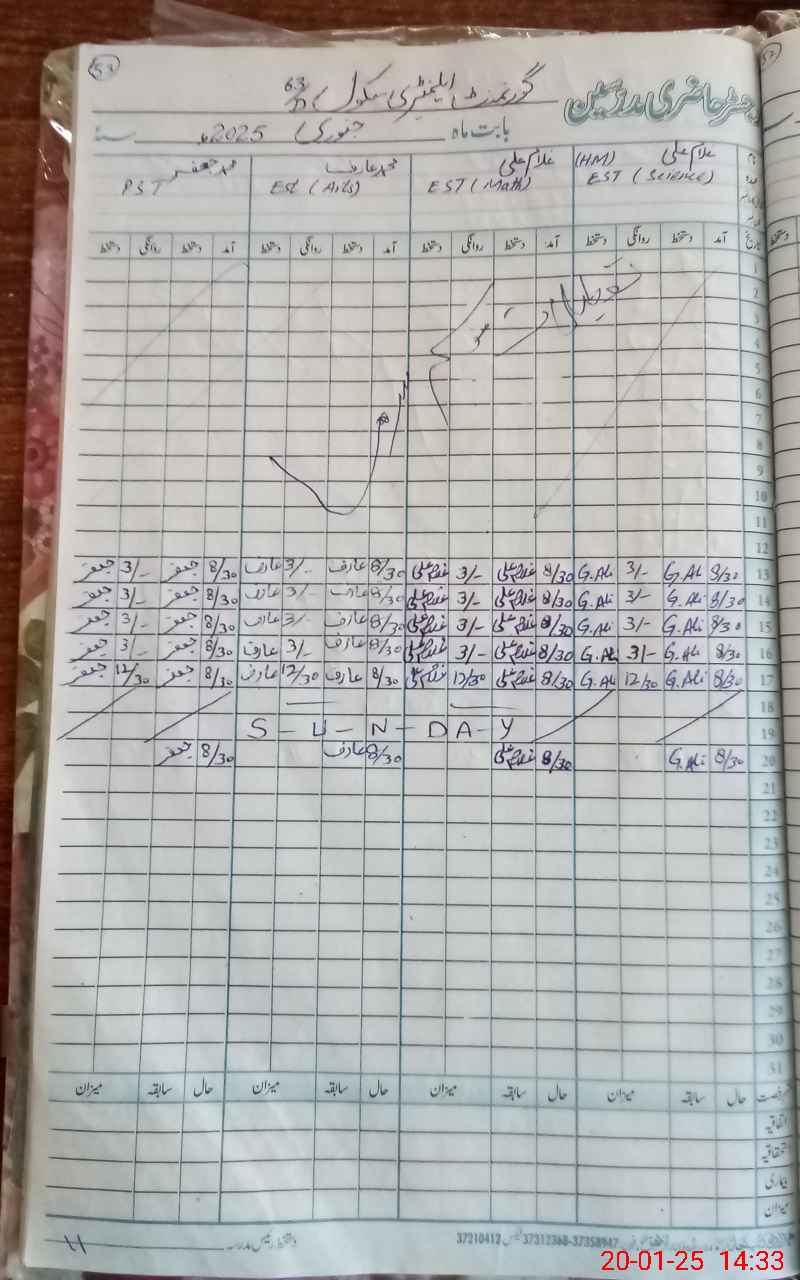 53
رجسٹر حاضری مدرسین گورنمنٹ ایلیمنٹری سکول 63/D
بابت ماہ جنوری 2025ء سنہ
غلام علی (HM) غلام علی محمد عارف محمد جعفر
EST (Science) EST (Math) Est (Arts) PST
تاریخ آمد دستخط روانگی دستخط آمد دستخط روانگی دستخط آمد دستخط روانگی دستخط آمد دستخط روانگی دستخط
1
2
3
4
5
6
7
8
9
10
11
12
13 8/30 G.Ali 3/- G.Ali 8/30 غلام علی 3/- غلام علی 8/30 عارف 3/- عارف 8/30 جعفر 3/- جعفر
14 8/30 G.Ali 3/- G.Ali 8/30 غلام علی 3/- غلام علی 8/30 عارف 3/- عارف 8/30 جعفر 3/- جعفر
15 8/30 G.Ali 3/- G.Ali 8/30 غلام علی 3/- غلام علی 8/30 عارف 3/- عارف 8/30 جعفر 3/- جعفر
16 8/30 G.Ali 3/- G.Ali 8/30 غلام علی 3/- غلام علی 8/30 عارف 3/- عارف 8/30 جعفر 3/- جعفر
17 8/30 G.Ali 12/30 G.Ali 8/30 غلام علی 12/30 غلام علی 8/30 عارف 12/30 عارف 8/30 جعفر 12/30 جعفر
18
19 S-U-N-DA-Y
20 8/30 G.Ali 8/30 غلام علی 8/30 عارف 8/30 جعفر
21
22
23
24
25
26
27
28
29
30
31
رخصت حال سابقہ میزان حال سابقہ میزان حال سابقہ میزان حال سابقہ میزان
اتفاقیہ
استحقاقیہ
بیماری
میزان
دستخط رئیس مدرسہ
37210412 37312368-37358947
20-01-25 14:33